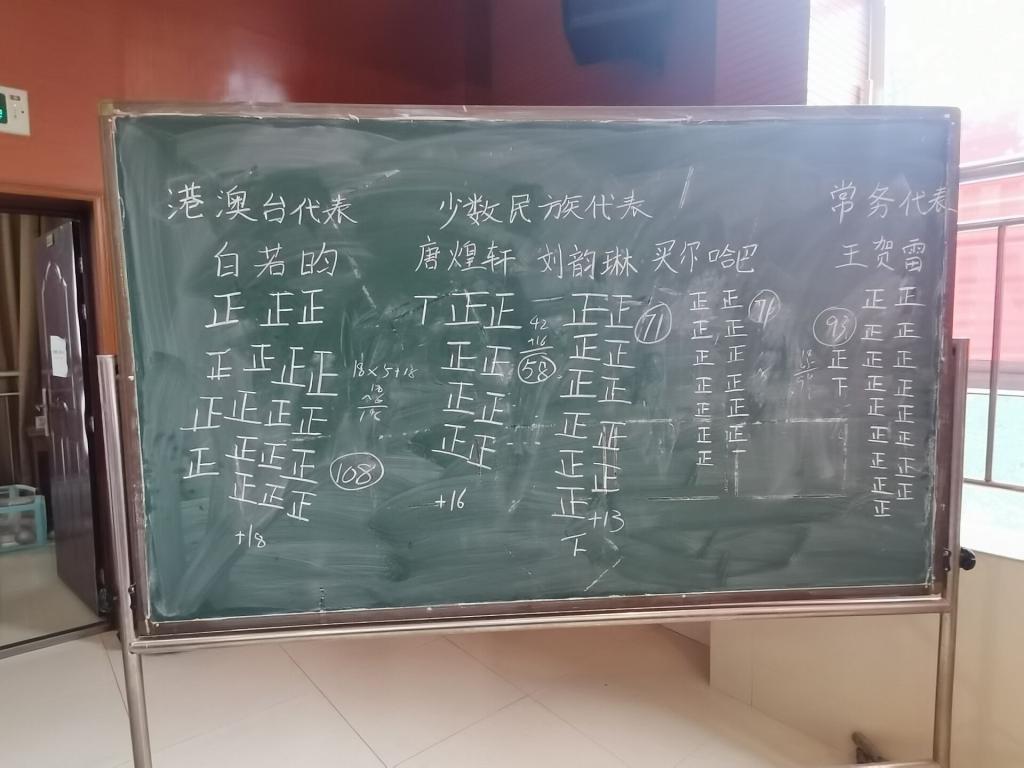 港澳台代表 少数民族代表 常务代表
白若昀 唐煌轩 刘韵琳 买尔哈巴 王贺雷
正 正正 丅 正正 正正 正正 正正
正 正正正 正正 正正 正正 正正 正
正 正正正 正正 正正 正正 正正 下
正 正正正 正正 正正 正正 正正
正正正 正正 正正 正正
正正 正正 正正
正 正 正正
正
42
+16
58
71
93
18×5+18
108
+18
+16
+13
下